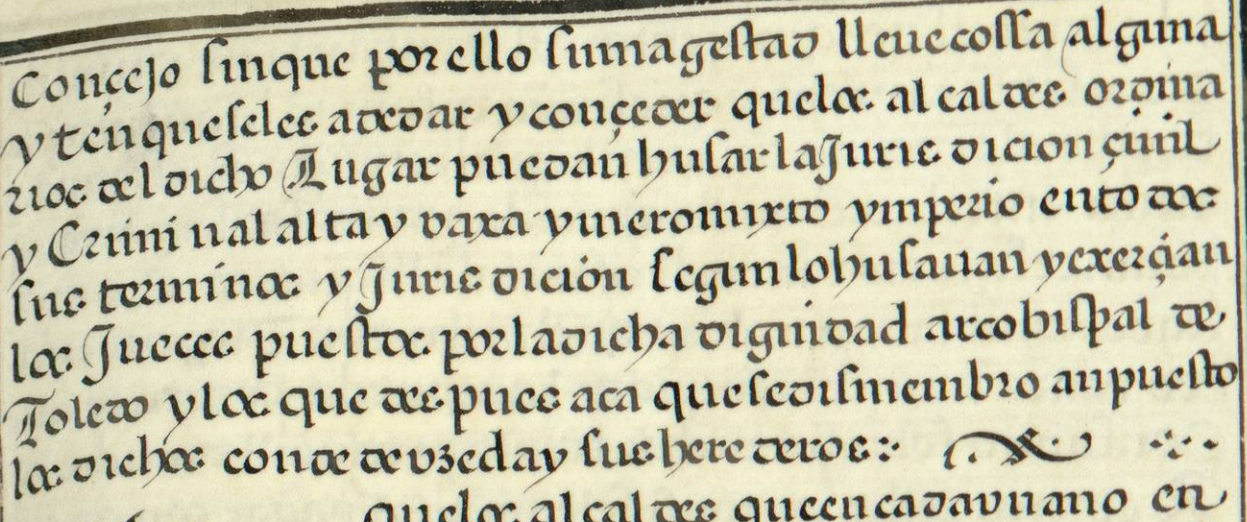 Conçejo sinque por ello sumagestad lleue cossa alguna
yten que seles a de dar y conçeder quelos alcaldes ordina
rios del dicho Lugar puedan husar la Jurisdicion çiuil
y Criminal alta y vaxa y meromixto ymperio entodos
sus terminos y Jurisdiciòn segun lo husauan y exerçian
los Jueces puestos por la dicha dignidad arcobispal de
Toledo y los que despues aca que se dismembro an puesto
los dichos conde de vzeda y sus herederos:
quelos alcaldes que en cada vn ano en